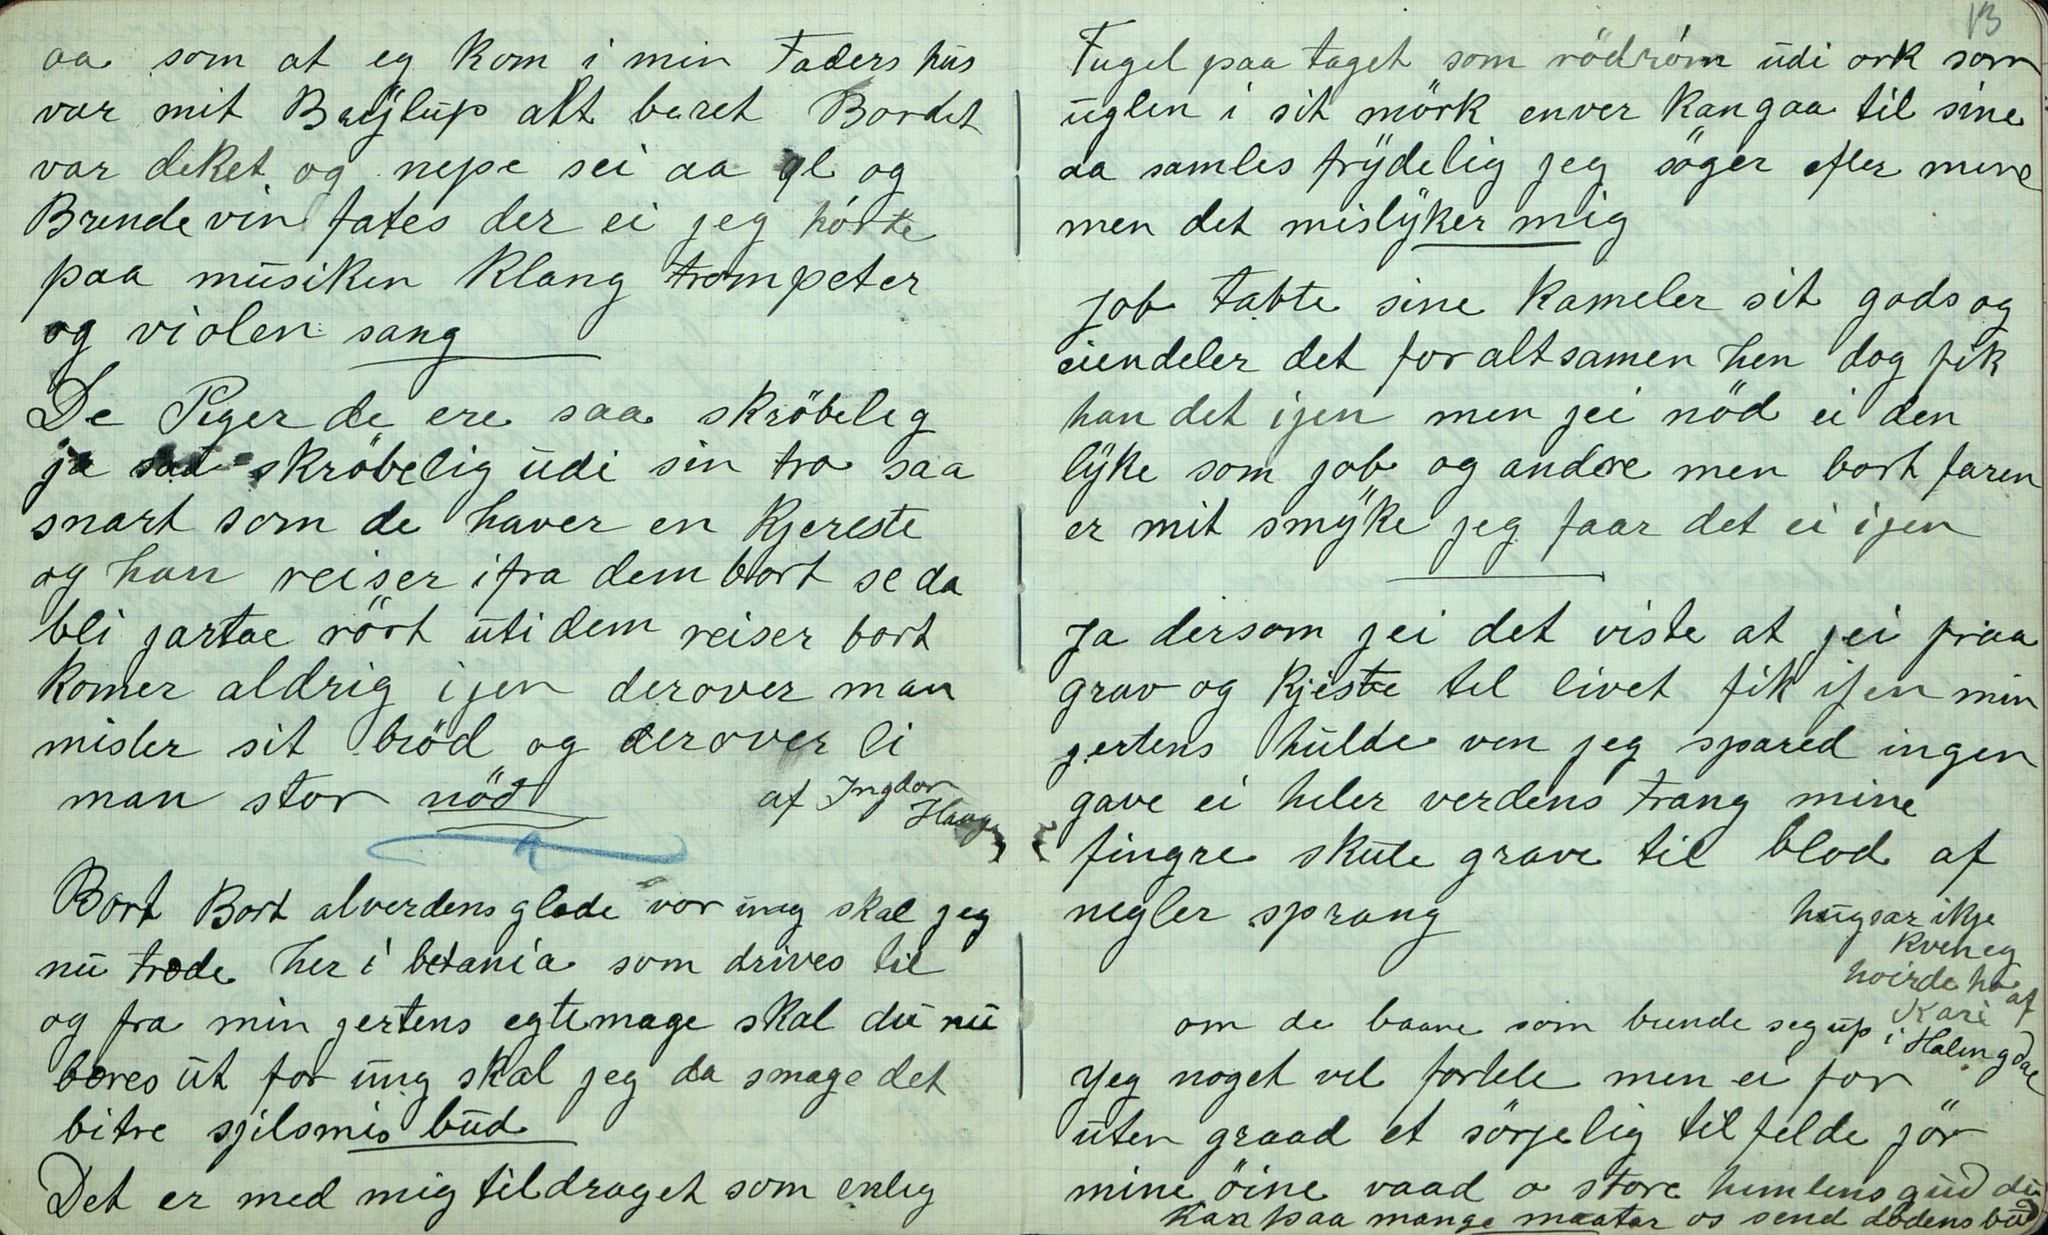 aa som at eg kom i min Faders hus
var mit Bryljup alt beret Bordet
var deket og nepe sei aa øl og
Brendevin fates der ei jeg hörte
paa musiken klang trompeter
og violen sang
De Piger de ere saa skröbelig
ja saa skröbelig udi sin tro saa
snart som de haver en kjereste
og han reiser ifra dem bort se da
bli jartae rört uti dem reiser bort
komer aldrig ijen derover man
mister sit bröd og derover li
man stor nöd
af Ingdor
Haug
Bort Bort alverdens glede vor ung skal jeg
nu trede her i betania som drives til
og fra min jertens egtemage skal du nu
beres ut for ung skal jeg da smage det
bitre sjilsmis bud
Det er med mig tildraget som enlig
13
Fugel paa taget som rödröm udi ork som
uglen i sit mörk enver kan gaa til sine
aa samles frydelig jeg söger efter mine
men det mislyker mig
Job tabte sine kameler sit gods og
eiendeler det for altsamen hen dog fik
han det ijen men jei nöd ei den
lyke som job og andre men bort faren
er mit smyke jeg faar det ei ijen
Ja dersom jei det viste at jei fraa
grav og kjiste til livet fik ijen min
jertens hulde ven jeg spared ingen
gave ei heler verdens trang mine
fingre skule grave til blod af
negler sprang
hugsar ikje
kven eg
hoirde ho af
Kari
i Halingdal
om de baare som bunde seg up
Jeg noget vil fortele men ei for
uten graad et sörjelig tilfelde jör
mine öine vaad o store himlens gud du
kan paa mange maatar os send dödens bud